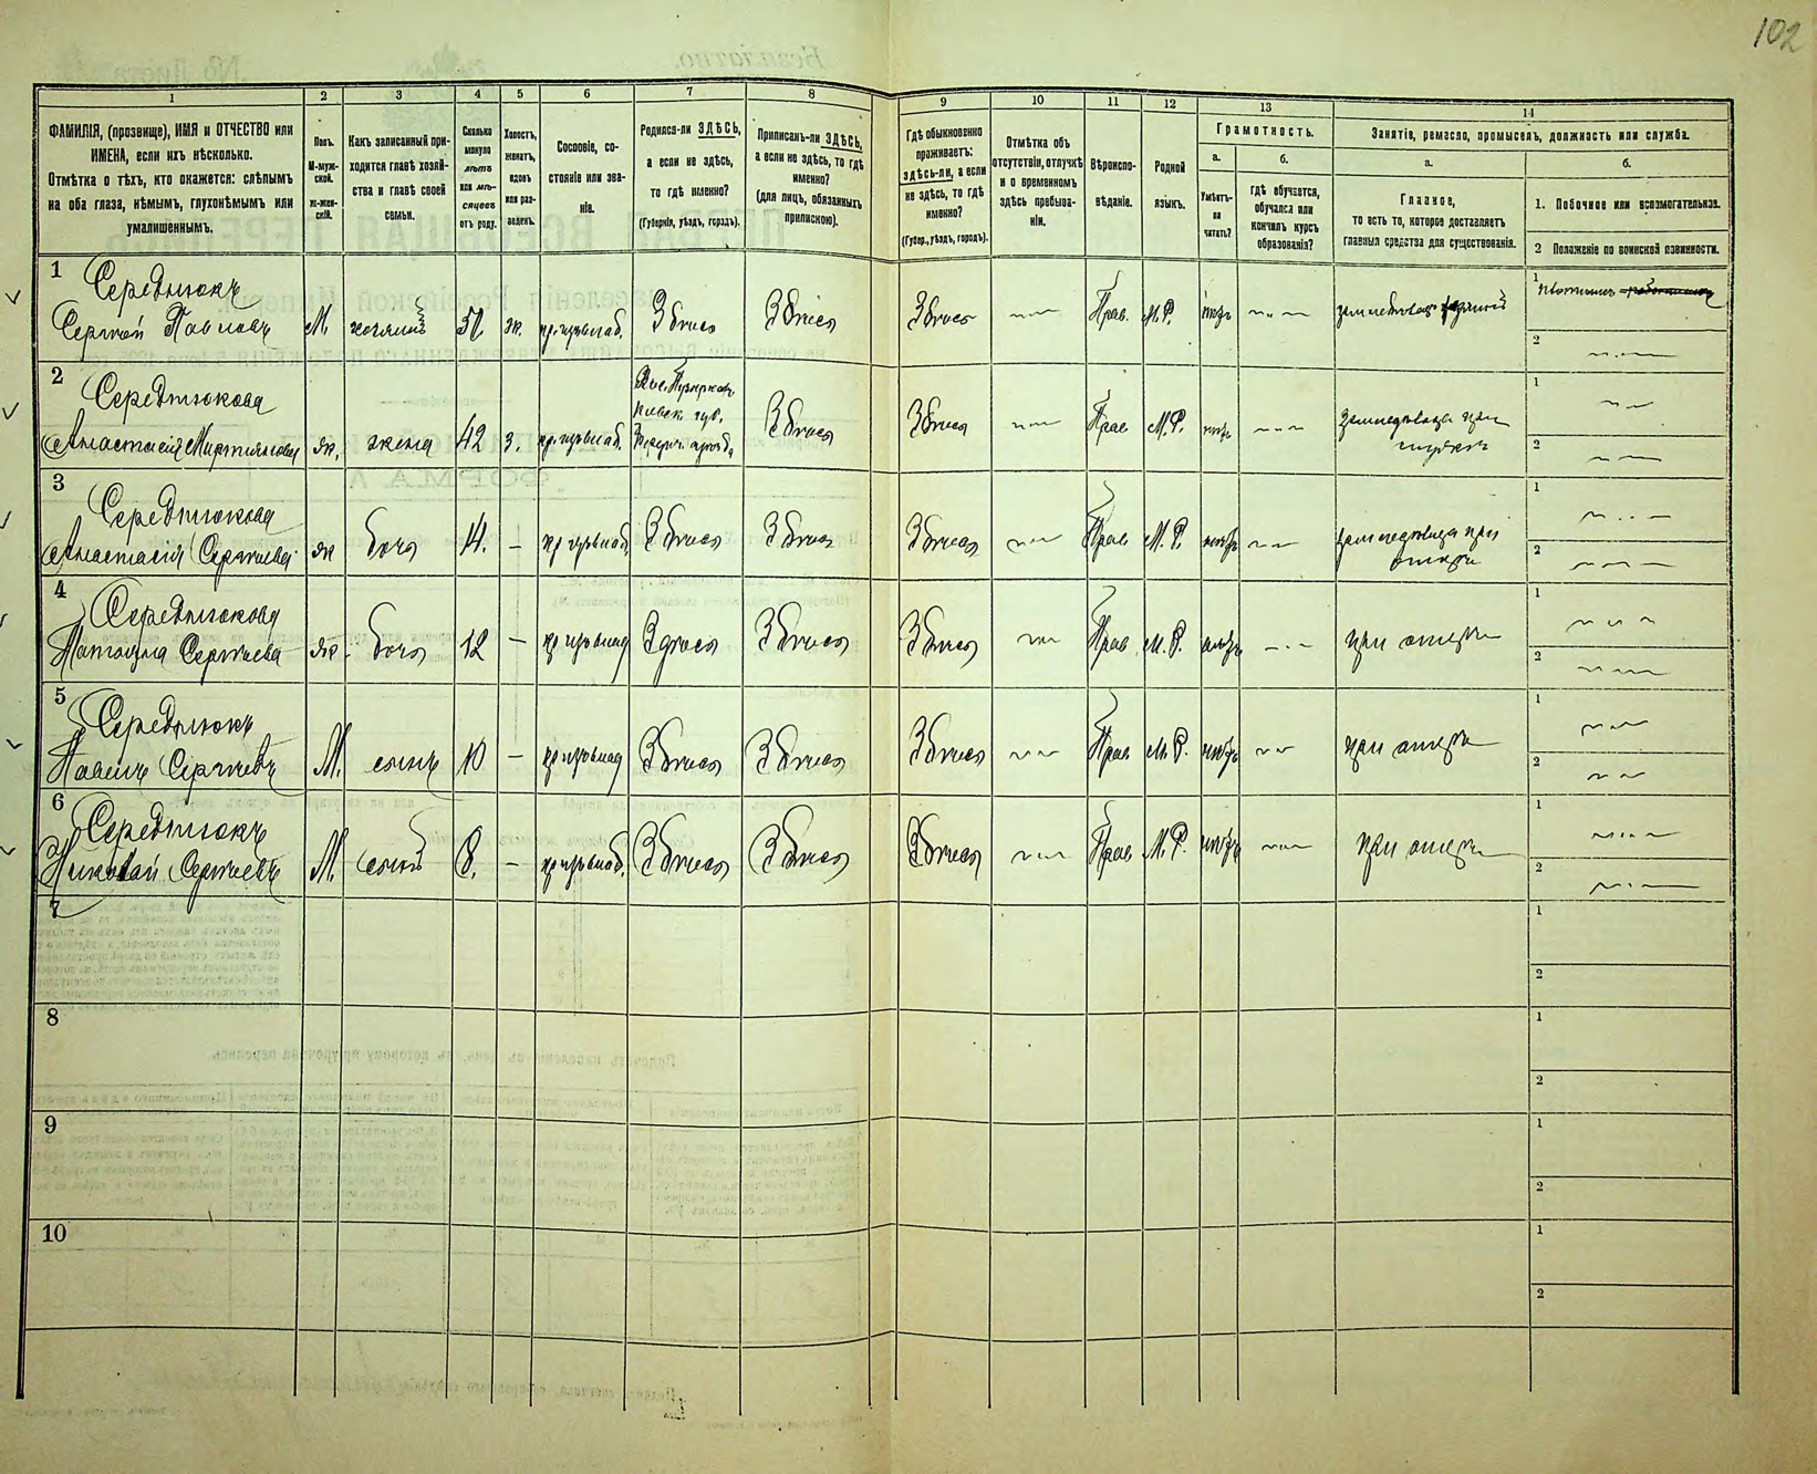 102
1
2
3
4
5
6
7
8
9
10
11
12
13
14
ФАМИЛІЯ, (прозвище), ИМЯ и ОТЧЕСТВО или
ИМЕНА, если ихъ нѣсколько.
Отмѣтка о тѣхъ, кто окажется: слѣпымъ
на оба глаза, нѣмымъ, глухонѣмымъ или
умалишеннымъ.
Полъ.
М-муж-
ской.
ж-жен-
скій.
Какъ записанный при-
ходится главѣ хозяй-
ства и главѣ своей
семьи.
Сколько
минуло
лѣтъ
или мѣ-
сяцевъ
отъ роду.
Холостъ,
женатъ,
вдовъ
или раз-
веденъ.
Сословіе, со-
стояніе или зва-
ніе.
Родился-ли ЗДѢСЬ,
а если не здѣсь,
то гдѣ именно?
(Губернія, уѣздъ, городъ).
Приписанъ-ли ЗДѢСЬ,
а если не здѣсь, то гдѣ
именно?
(для лицъ, обязанныхъ
припискою).
Гдѣ обыкновенно
проживаетъ:
здѣсь-ли, а если
не здѣсь, то гдѣ
именно?
(Губер., уѣздъ, городъ).
Отмѣтка объ
отсутствіи, отлучкѣ
и о временномъ
здѣсь пребыва-
ніи.
Вѣроиспо-
вѣданіе.
Родной
языкъ.
Грамотность.
а.
Умѣетъ-
ли
читать?
б.
гдѣ обучается,
обучался или
кончилъ курсъ
образованія?
Занятіе, ремесло, промыселъ, должность или служба.
а.
Главное,
то есть то, которое доставляетъ
главныя средства для существованія.
б.
1. Побочное или вспомогательное.
2 Положеніе по воинской повинности.
1
Середнюкъ
Сергѣй Павловъ М. хозяинъ ж. Здѣсь Здѣсь Здѣсь Прав. М.Р. нѣтъ
1
2
2
Середнюкова
Анастасія Мартынова ж. жена 42 з. Здѣсь Здѣсь Прав М.Р. нѣтъ
1
2
3
Середнюкова
Анастасія Сергѣева ж дочь 14. – Здѣсь Здѣсь Здѣсь Прав М.Р. нѣтъ
1
2
4
Середнюкова
Сергѣева ж. дочь 12 – Здѣсь Здѣсь Здѣсь Прав М.Р. нѣтъ при отцѣ
1
2
5
Середнюкъ
Павелъ Сергѣевъ М. сынъ 10 – Здѣсь Здѣсь Здѣсь Прав М.Р. нѣтъ при отцѣ
1
2
6
Середнюкъ
Николай Сергѣевъ М. сынъ 8. – Здѣсь Здѣсь Здѣсь Прав М.Р. нѣтъ при отцѣ
1
2
7
1
2
8
1
2
9
1
2
10
1
2